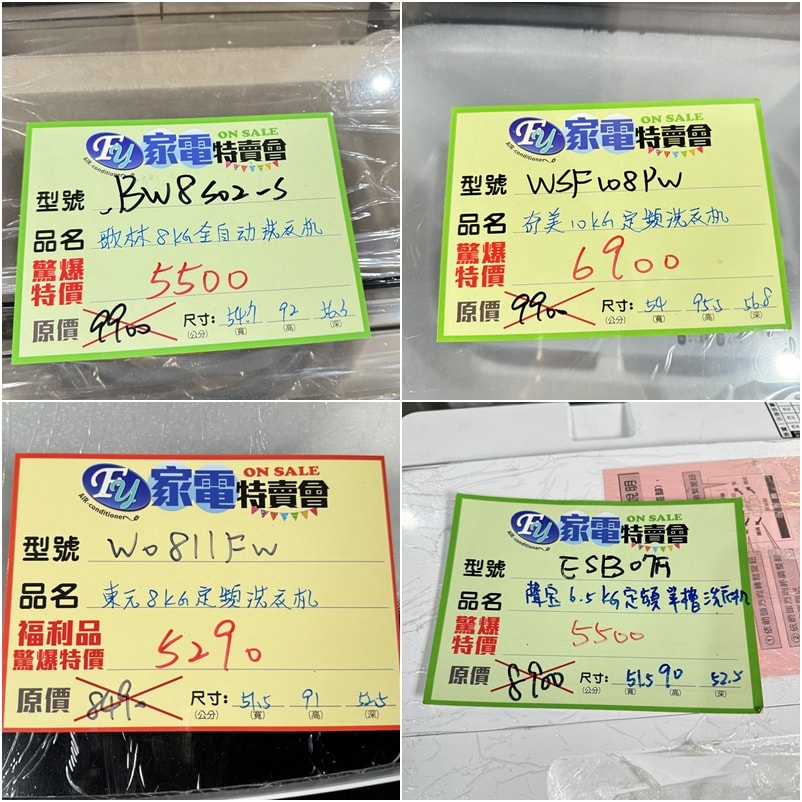 FY 家電特賣會
ON SALE
AIR-conditioner
型號 BW8S02-S
品名 歌林8KG全自动洗衣机
驚爆特價 5500
原價 9900 尺寸: 54.7 92 56.5
(公分) (寬) (高) (深)
FY 家電特賣會
ON SALE
AIR-conditioner
型號 WSF108PW
品名 奇美10KG定頻洗衣机
驚爆特價 6900
原價 9900 尺寸: 54 95.5 56.8
(公分) (寬) (高) (深)
FY 家電特賣會
ON SALE
AIR-conditioner
型號 W0811FW
品名 東元8KG定頻洗衣机
福利品
驚爆特價 5290
原價 8490 尺寸: 51.5 91 52.5
(公分) (寬) (高) (深)
FY 家電特賣會
ON SALE
AIR-conditioner
型號
品名 聲宝6.5KG定頻單槽洗衣机
驚爆特價 5500
原價 8900 尺寸: 51.5 90 52.5
(公分) (寬) (高) (深)
說明